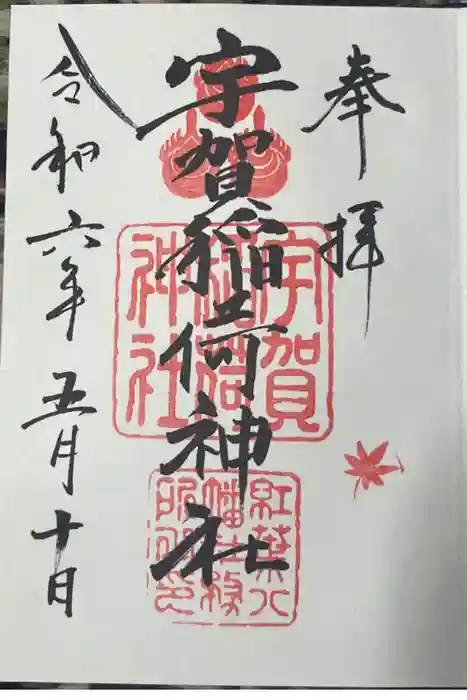 奉拝
宇賀稲荷神社
宇賀稲荷神社
紅葉八幡社務所印
令和六年五月十日